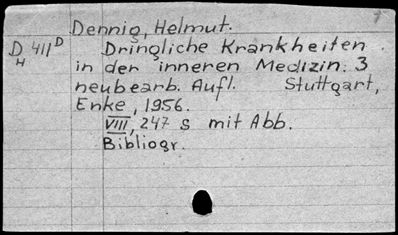 Dennig, Helmut.
D 411 D Dringliche Krankheiten
H in der inneren Medizin. 3
neubearb. Aufl. Stuttgart,
Enke, 1956.
VIII, 247 s mit Abb.
Bibliogr.